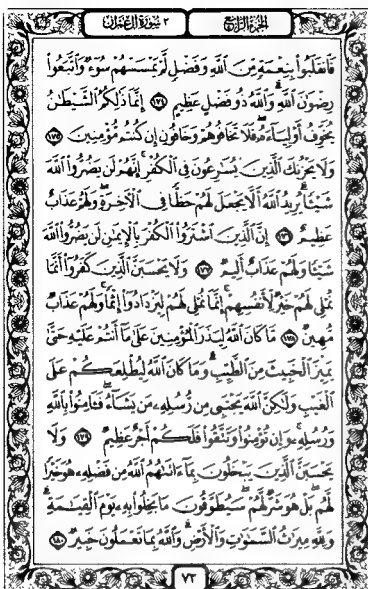 ٣ سورة آل عمران الجزء الرابع
فَٱنقَلَبُوا۟ بِنِعْمَةٍ مِّنَ ٱللَّهِ وَفَضْلٍ لَّمْ يَمْسَسْهُمْ سُوٓءٌ وَٱتَّبَعُوا۟
رِضْوَٰنَ ٱللَّهِ وَٱللَّهُ ذُو فَضْلٍ عَظِيمٍ ١٧٤ إِنَّمَا ذَٰلِكُمُ ٱلشَّيْطَٰنُ
يُخَوِّفُ أَوْلِيَآءَهُۥ فَلَا تَخَافُوهُمْ وَخَافُونِ إِن كُنتُم مُّؤْمِنِينَ ١٧٥
وَلَا يَحْزُنكَ ٱلَّذِينَ يُسَٰرِعُونَ فِى ٱلْكُفْرِ إِنَّهُمْ لَن يَضُرُّوا۟ ٱللَّهَ
شَيْـًٔا يُرِيدُ ٱللَّهُ أَلَّا يَجْعَلَ لَهُمْ حَظًّا فِى ٱلْـَٔاخِرَةِ وَلَهُمْ عَذَابٌ
عَظِيمٌ ١٧٦ إِنَّ ٱلَّذِينَ ٱشْتَرَوُا۟ ٱلْكُفْرَ بِٱلْإِيمَٰنِ لَن يَضُرُّوا۟ ٱللَّهَ
شَيْـًٔا وَلَهُمْ عَذَابٌ أَلِيمٌ ١٧٧ وَلَا يَحْسَبَنَّ ٱلَّذِينَ كَفَرُوٓا۟ أَنَّمَا
نُمْلِى لَهُمْ خَيْرٌ لِّأَنفُسِهِمْ إِنَّمَا نُمْلِى لَهُمْ لِيَزْدَادُوٓا۟ إِثْمًا وَلَهُمْ عَذَابٌ
مُّهِينٌ ١٧٨ مَّا كَانَ ٱللَّهُ لِيَذَرَ ٱلْمُؤْمِنِينَ عَلَىٰ مَآ أَنتُمْ عَلَيْهِ حَتَّىٰ
يَمِيزَ ٱلْخَبِيثَ مِنَ ٱلطَّيِّبِ وَمَا كَانَ ٱللَّهُ لِيُطْلِعَكُمْ عَلَى
ٱلْغَيْبِ وَلَٰكِنَّ ٱللَّهَ يَجْتَبِى مِن رُّسُلِهِۦ مَن يَشَآءُ فَـَٔامِنُوا۟ بِٱللَّهِ
وَرُسُلِهِۦ وَإِن تُؤْمِنُوا۟ وَتَتَّقُوا۟ فَلَكُمْ أَجْرٌ عَظِيمٌ ١٧٩ وَلَا
يَحْسَبَنَّ ٱلَّذِينَ يَبْخَلُونَ بِمَآ ءَاتَىٰهُمُ ٱللَّهُ مِن فَضْلِهِۦ هُوَ خَيْرًا
لَّهُم بَلْ هُوَ شَرٌّ لَّهُمْ سَيُطَوَّقُونَ مَا بَخِلُوا۟ بِهِۦ يَوْمَ ٱلْقِيَٰمَةِ
وَلِلَّهِ مِيرَٰثُ ٱلسَّمَٰوَٰتِ وَٱلْأَرْضِ وَٱللَّهُ بِمَا تَعْمَلُونَ خَبِيرٌ ١٨٠
٧٣